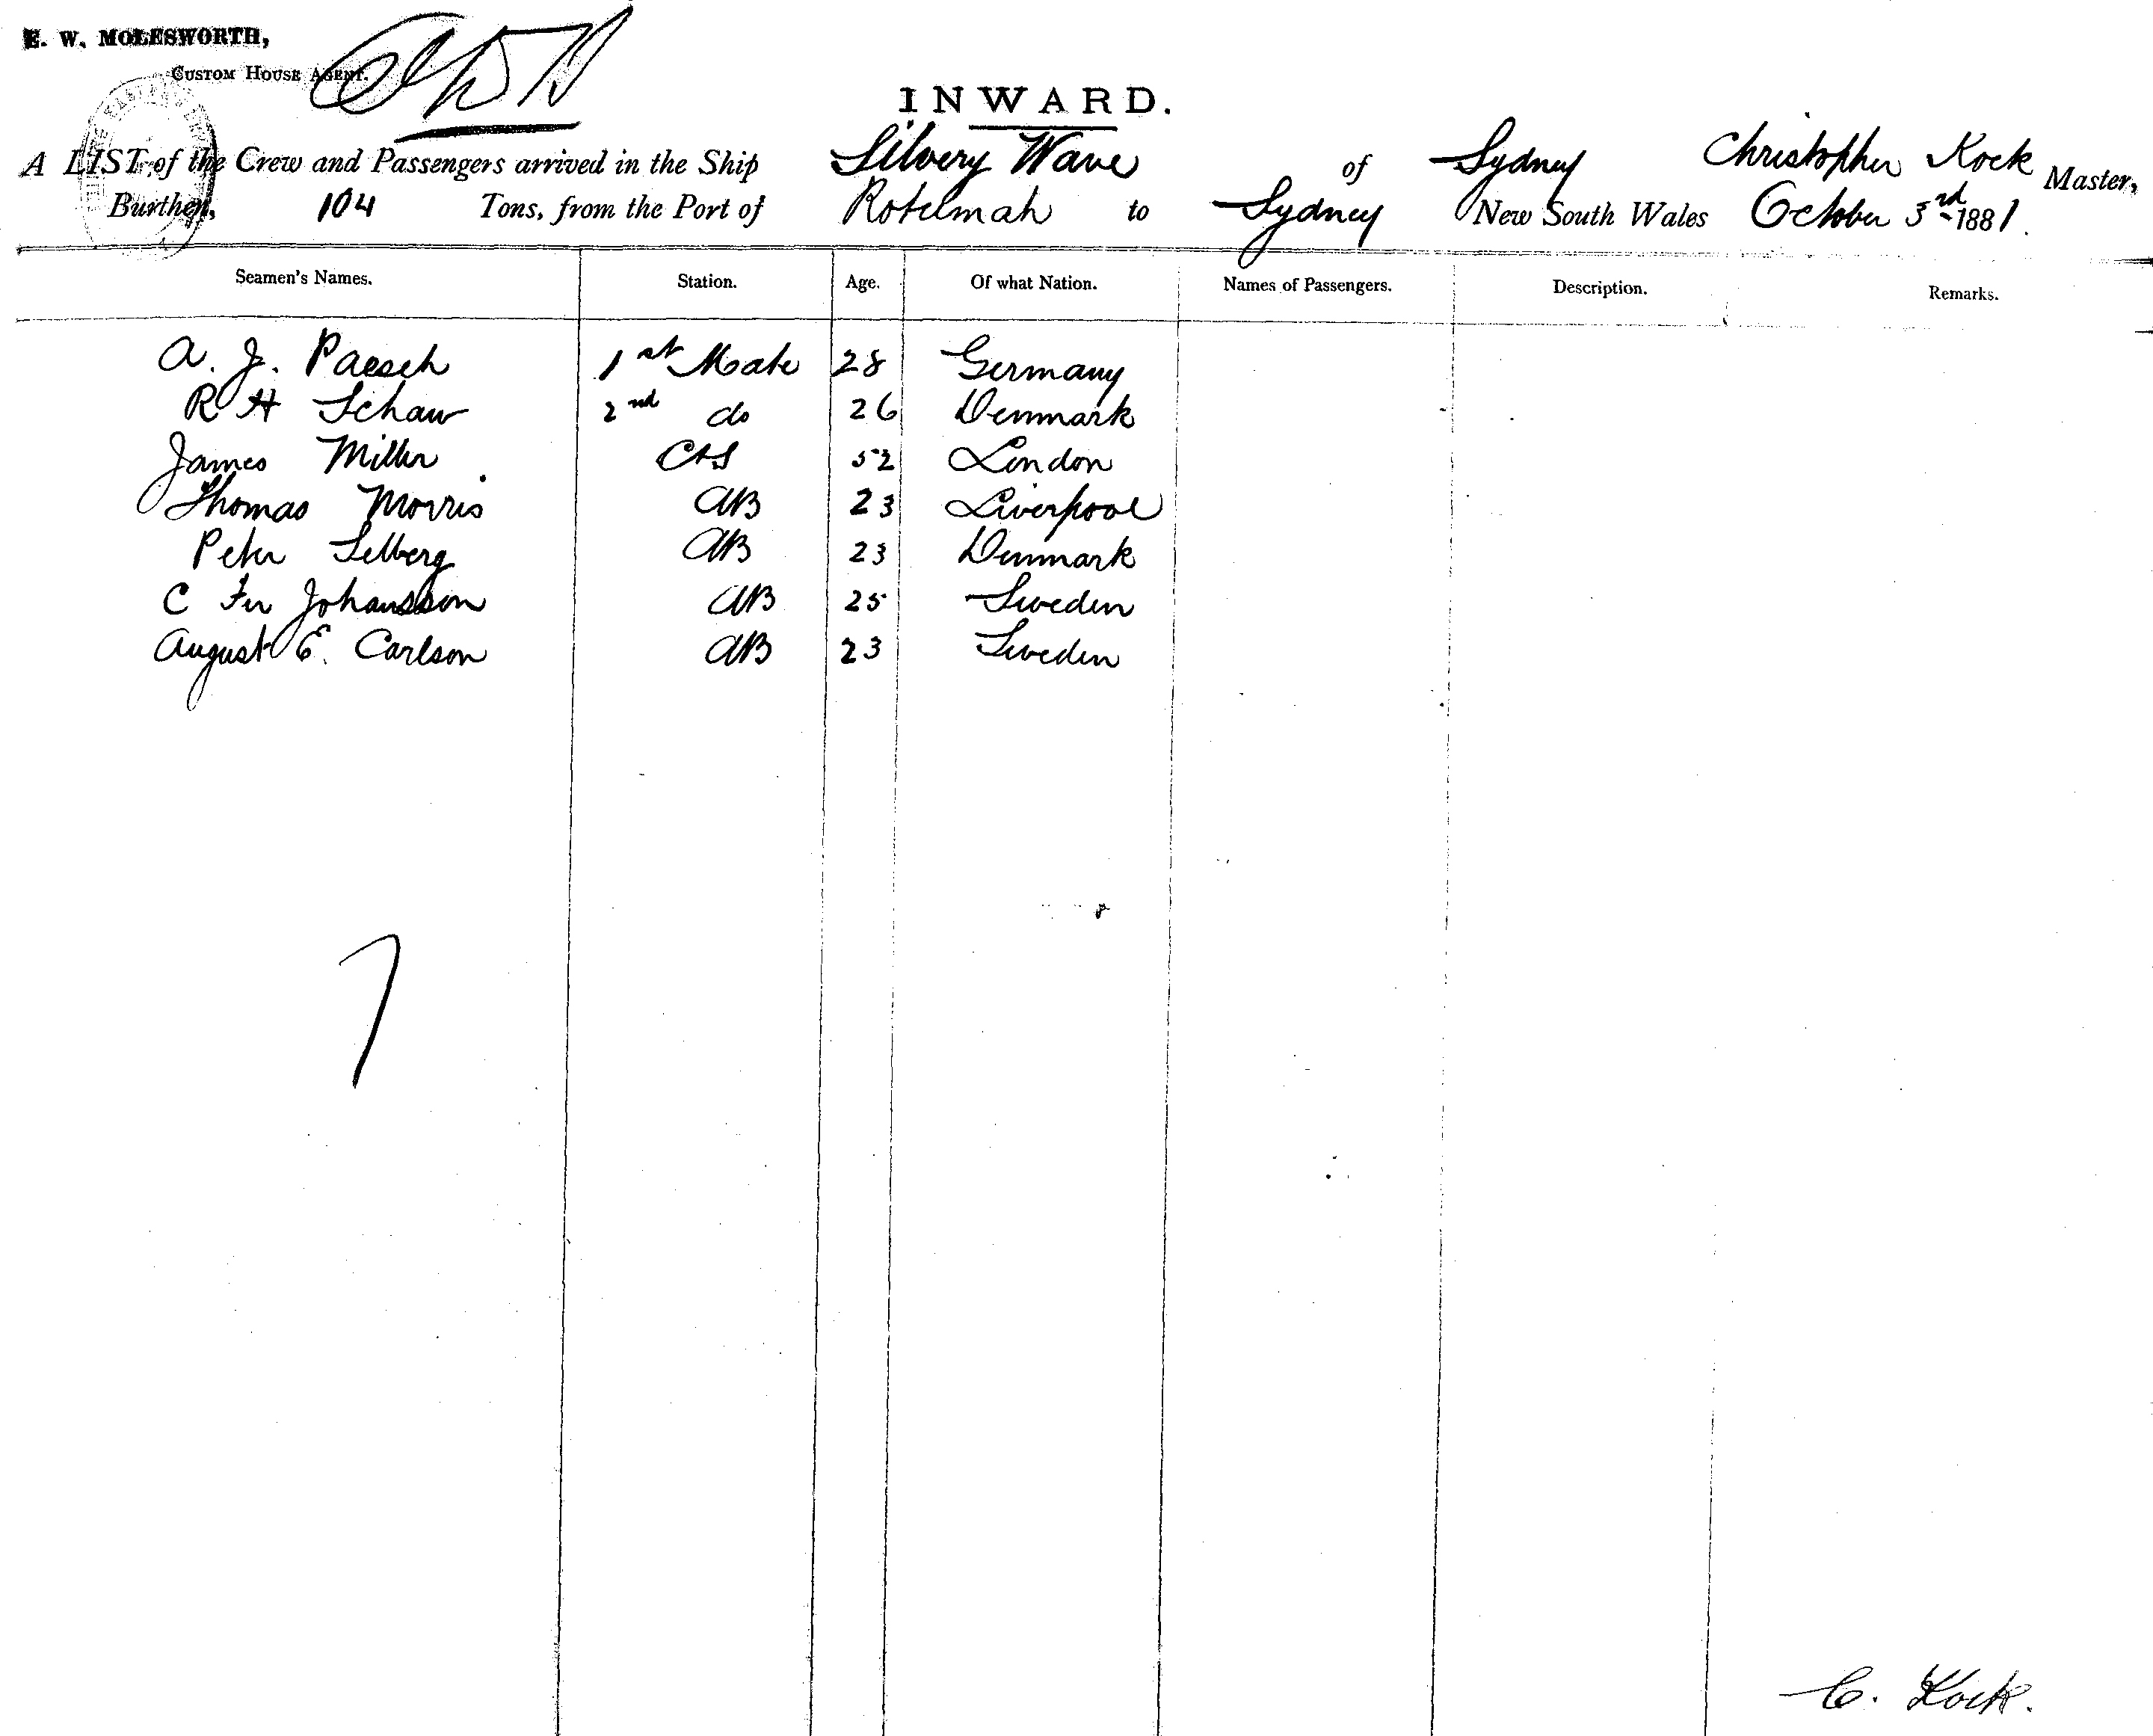 E. W. MOLESWORTH,
CUSTOM HOUSE AGENT.
INWARD.
A LIST of the Crew and Passengers arrived in the Ship Silvery Wave of Sydney Christopher Kock Master,
Burthen, 104 Tons, from the Port of Rotumah to Sydney New South Wales October 3rd 1881.
Seamen's Names. Station. Age. Of what Nation. Names of Passengers. Description. Remarks.
A. J. Paesch 1st Mate 28 Germany
R H Schaw 2nd do 26 Denmark
James Miller C&S 52 London
Thomas Morris AB 23 Liverpool
Peter Selberg AB 23 Denmark
C Fer Johansson AB 25 Sweden
August E. Carlson AB 23 Sweden
7
C. Kock.